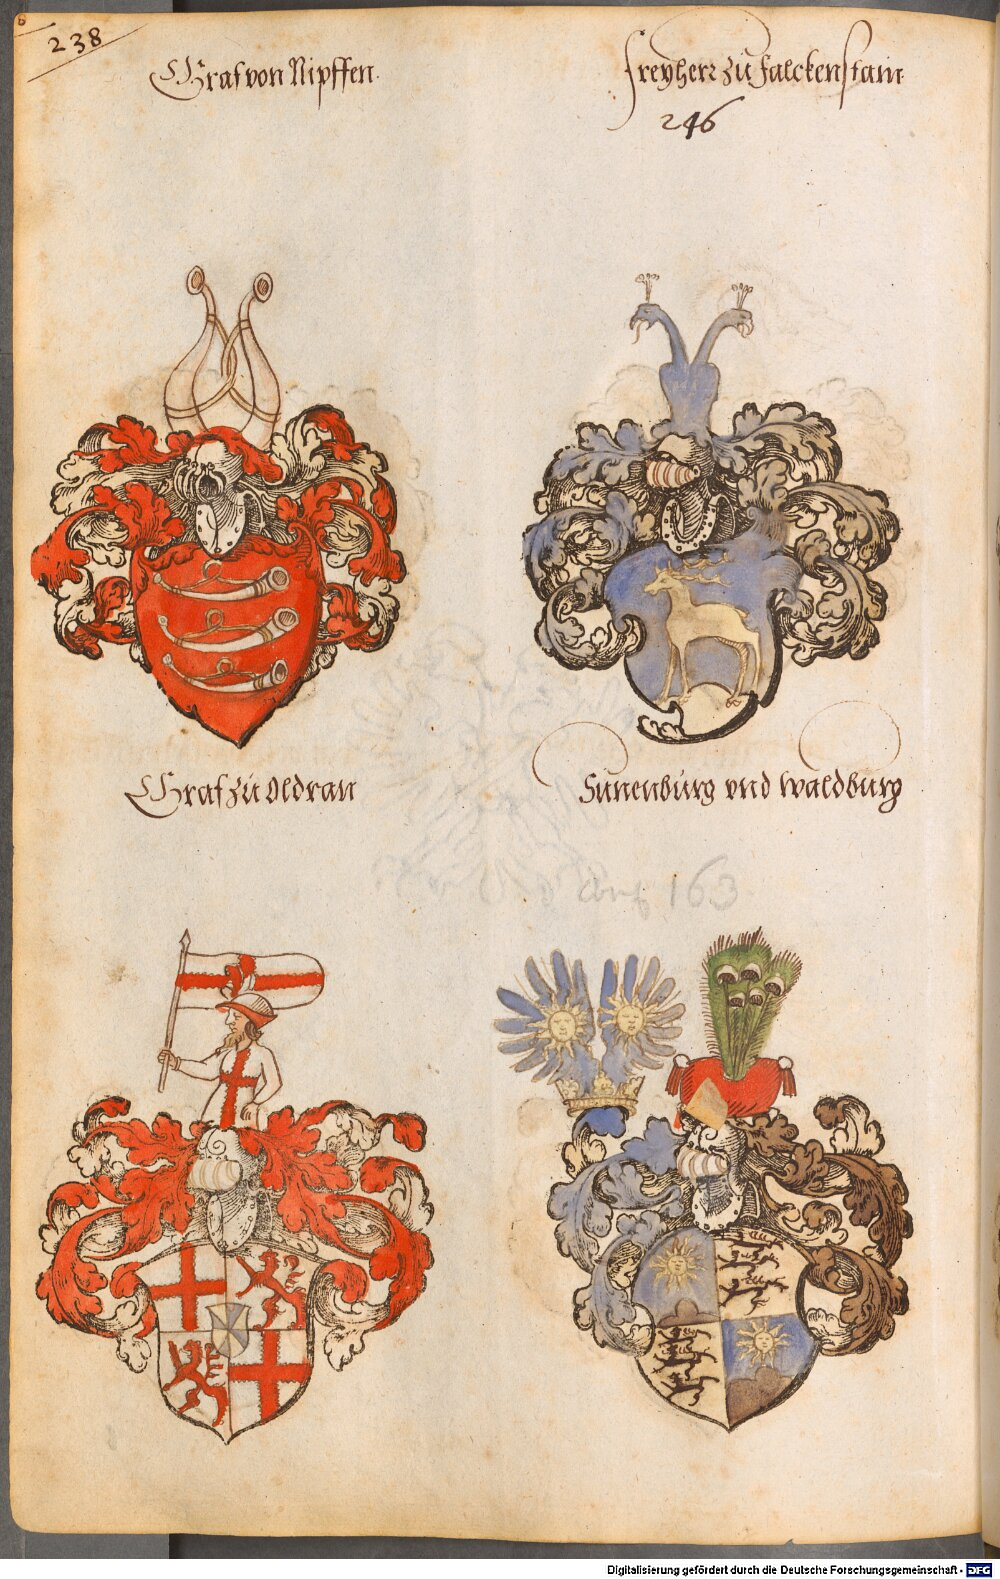 238
Graf von Nipffen.
freyherr zu falckenstain
246
Graf zu Oldran
Sunenburg vnd waldburg
163
Digitalisierung gefördert durch die Deutsche Forschungsgemeinschaft - DFG